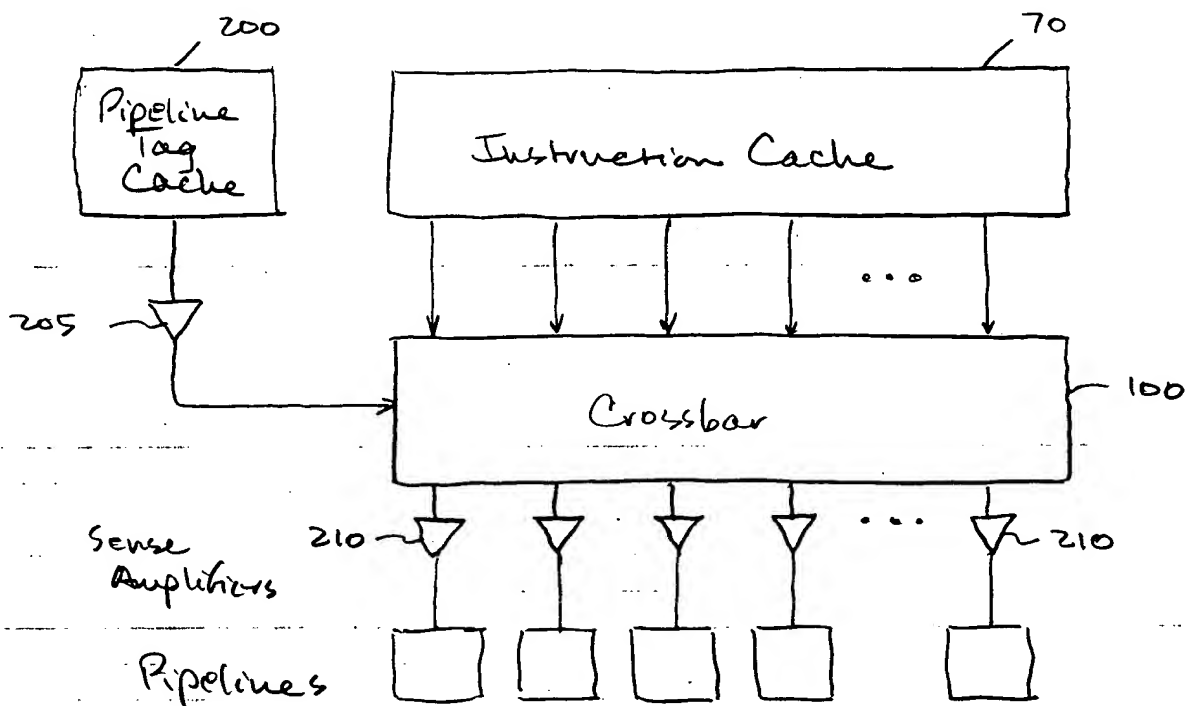 200
70
Pipeline
Tag
Cache
Instruction Cache
...
205
Crossbar
100
Sense
Amplifiers
210
...
210
Pipelines